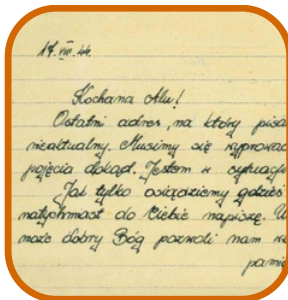 17.VIII.44.
Kochana Alu!
Ostatni adres, na który pisa
nieaktualny. Musimy się wyprowa
pojęcia dokąd. Jestem w sytuacji
Jak tylko osiądziemy gdzieś
natychmiast do Ciebie napiszę. U
może dobry Bóg pozwoli nam
pamię